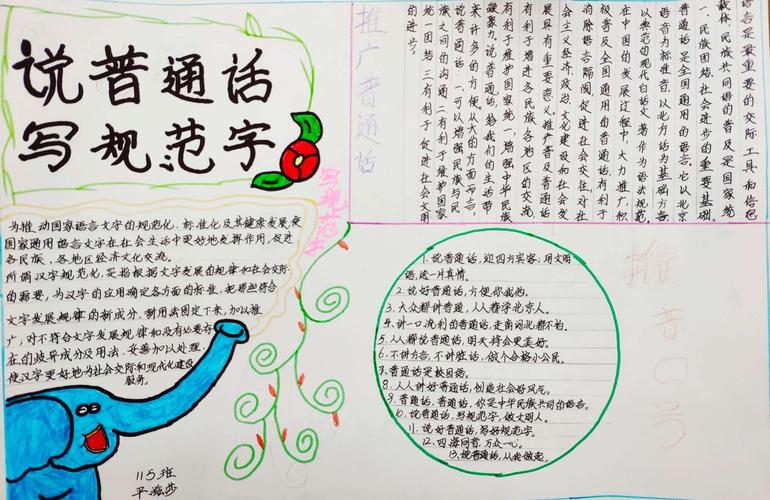 说普通话
写规范字
为推动国家语言文字的规范化、标准化及其健康发展,使
国家通用语言文字在社会生活中更好地发挥作用,促进
各民族、各地区经济文化交流。
所谓汉字规范化,是指根据文字发展的规律和社会交际
的需要,为汉字的应用确定各方面的标准,把那些符合
文字发展规律的新成分、新用法固定下来,加以推
广,对不符合文字发展规律和没有必要存
在的歧异成分及用法,妥善加以处理,
使汉字更好地为社会交际和现代化建设
服务。
115班
写规范字
推广普通话
语言是最重要的交际工具和信息
载体,民族共同语的普及是国家统
一、民族团结、社会进步的重要基础。
普通话是全国通用的语言。它以北京
语音为标准音,以北方话为基础方言,
以典范的现代白话文著作为语法规范。
在中国的发展过程中,大力推广,积
极普及全国通用的普通话,有利于
消除语言隔阂,促进社会交往,对社
会主义经济、政治、文化建设和社会发
展具有重要意义。推广普及普通话
有利于增进各民族各地区的交流,
有利于维护国家统一,增强中华民族
凝聚力。说普通话,给我们的生活带
来许多的方便。从大的方面而言,
说普通话:一可以增强民族与民
族之间的沟通二有利于维护国家
统一团结三有利于促进社会文明
的进步。
推普口号
1.说普通话,迎四方宾客;用文明
语,送一片真情。
2.说好普通话,方便你我他。
3.大众郫讲普通,人人争学北京人。
4.讲一口流利的普通话,走南闯北都不怕。
5.人人都说普通话,明天将会更美好。
6.不讲方言,不讲脏话,做个合格小公民。
7.普通话是校园语。
8.人人讲好普通话,创造社会好风气。
9.普通话,普通话,你是中华民族共同的语言。
10.说普通话,写规范字,做文明人。
11.说好普通话,写好规范字。
12.四海同音,万众一心。
13.说普通话,从我做起。